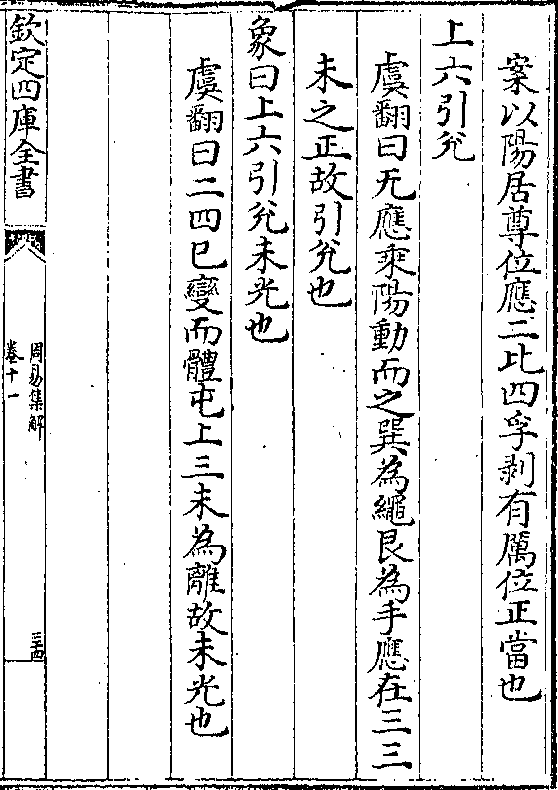 案以陽居尊位應二比四孚剥有厲位正當也
上六引兊
虞翻曰无應乘陽動而之巽為繩艮為手應在三三
未之正故引兊也
象曰上六引兊未光也
虞翻曰二四已變而體屯上三未為離故未光也
欽定四庫全書
周易集解
卷十一
三十四